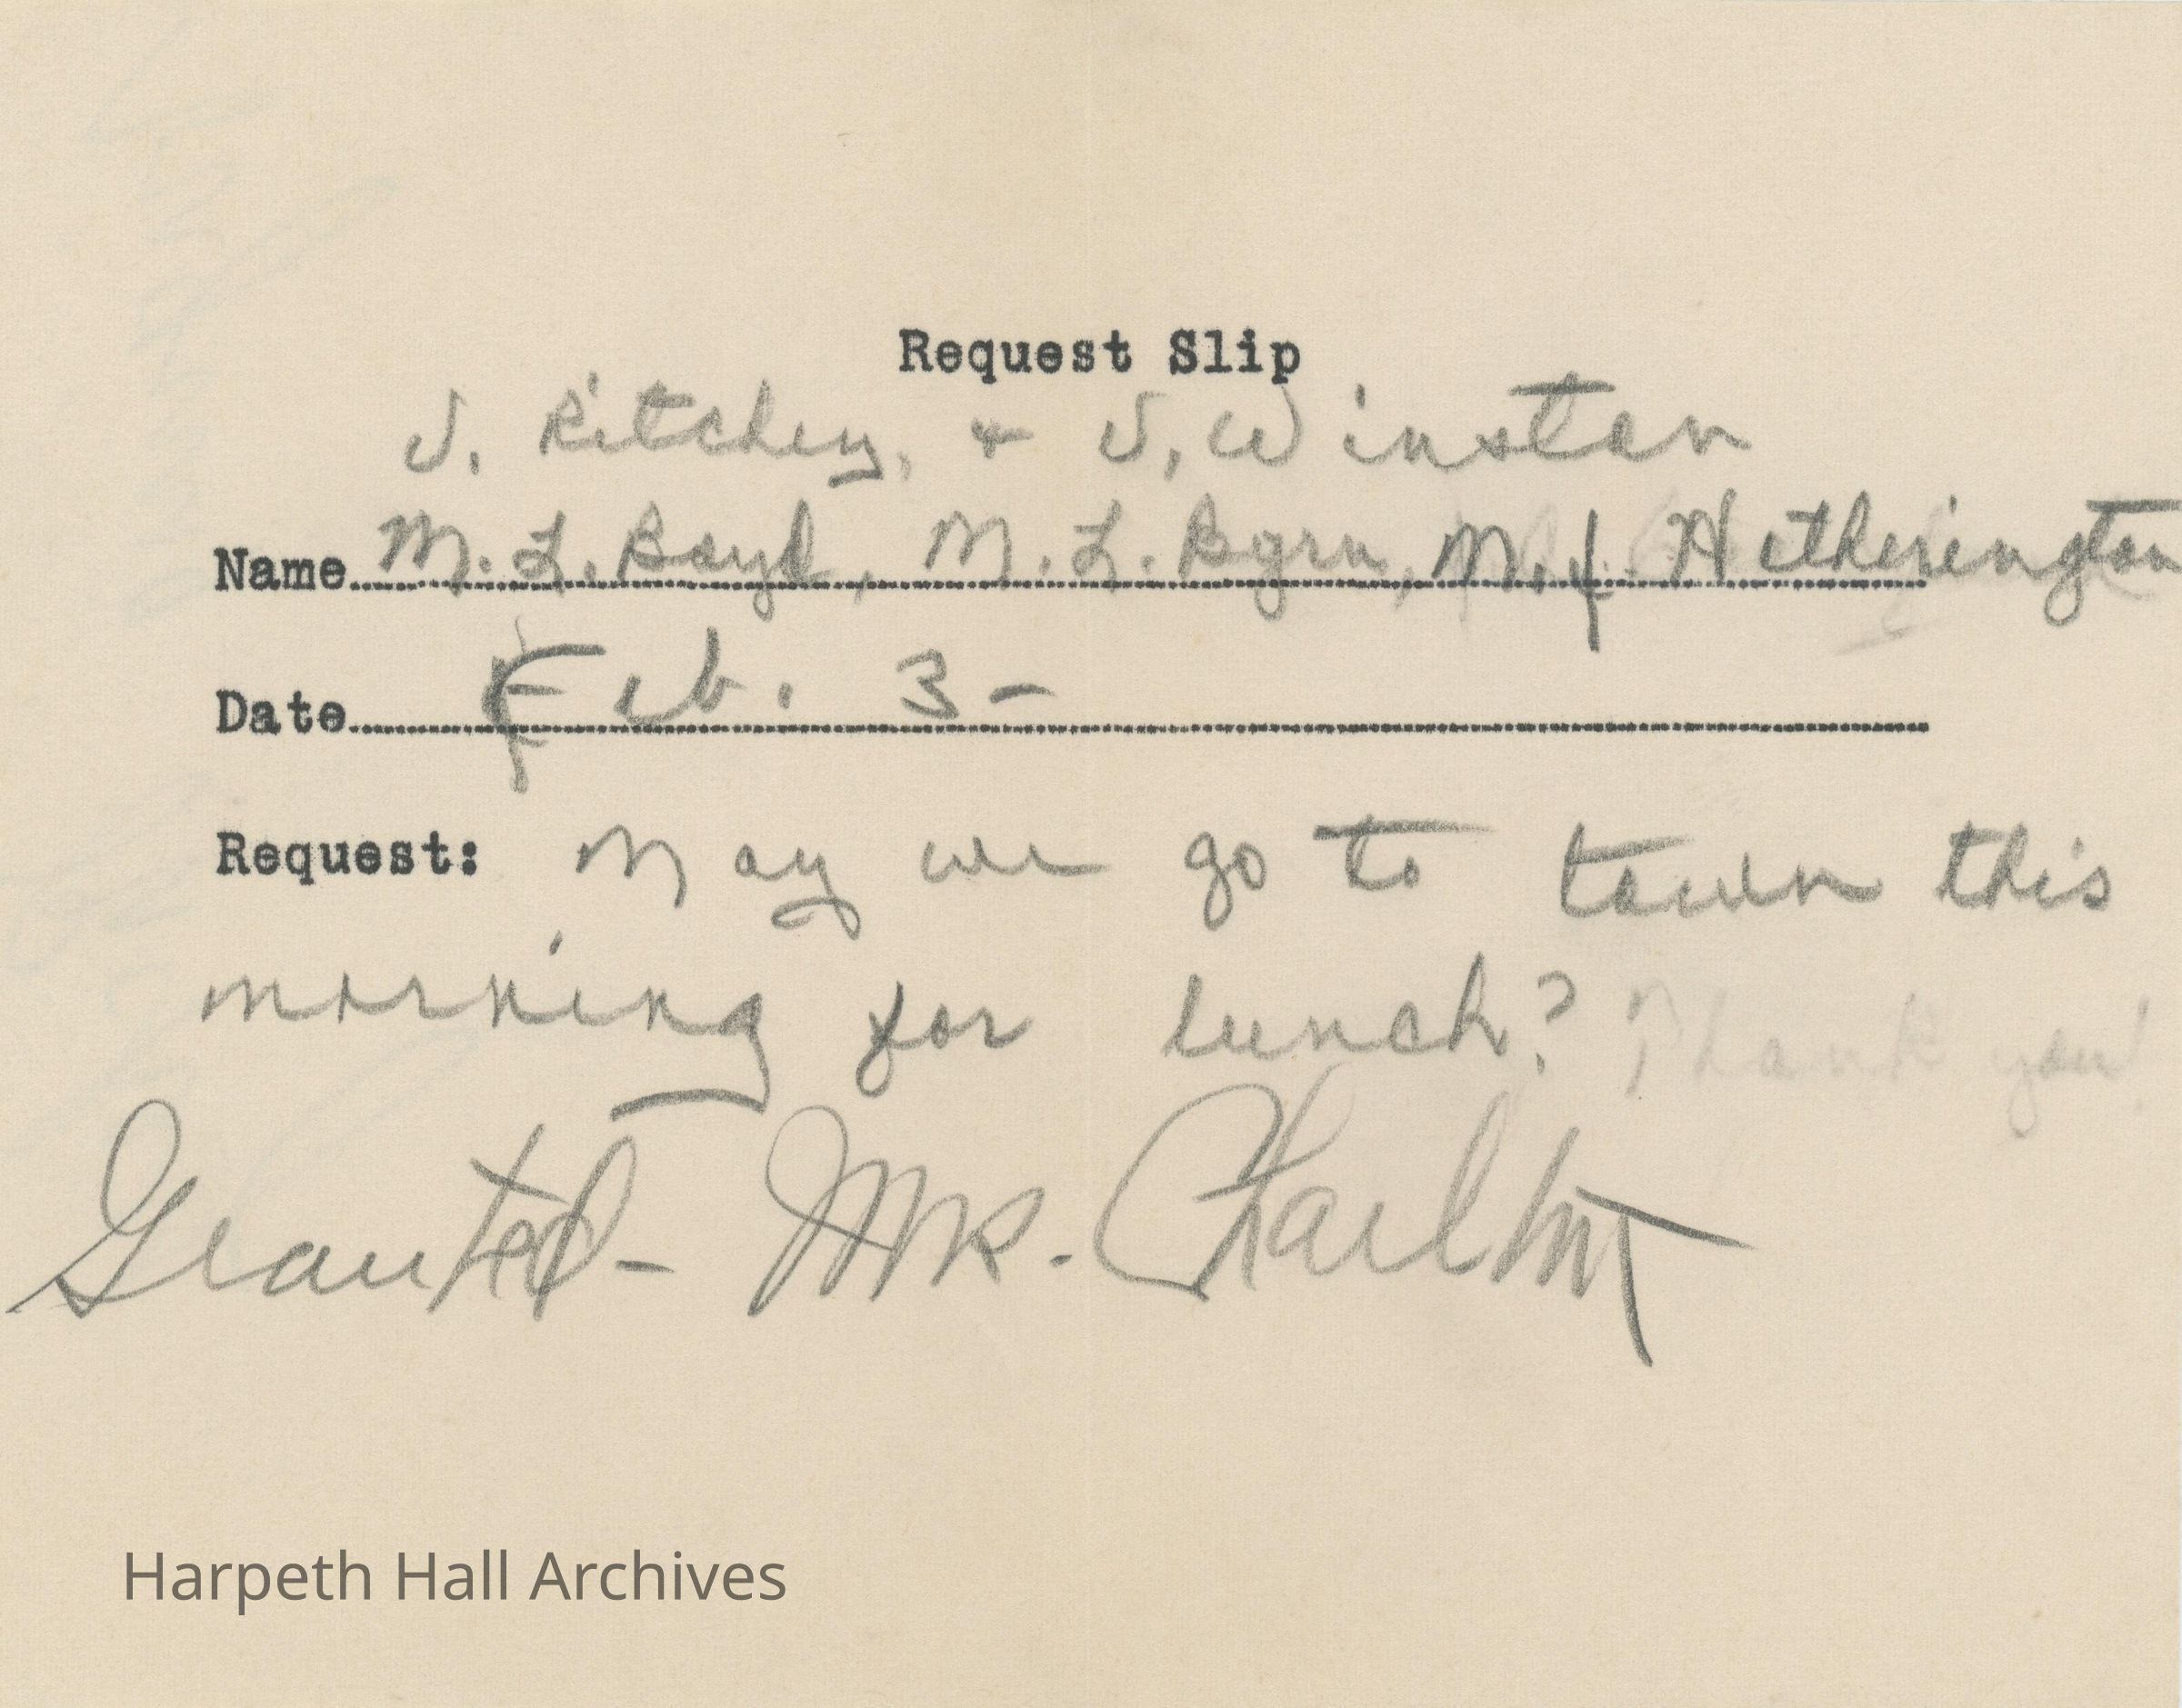 Request Slip
J. Ritchey, & J. Winston
Name M. L. Boyd, M. L. Byrn, M. J. Hetherington
Date Feb. 3 -
Request: May we go to town this
morning for lunch? Thank you!
Granted - Mrs. Charlton
Harpeth Hall Archives